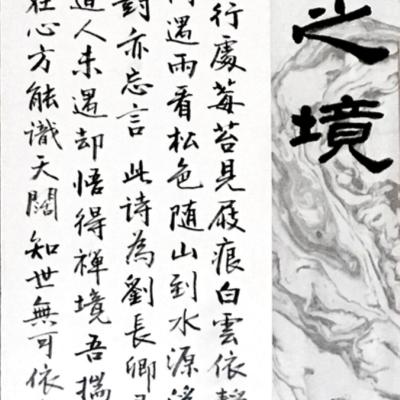 之境
行處莓苔見屐痕白雲依靜
門遇雨看松色随山到水源溪
對亦忘言 此詩為劉長卿
道人未遇却悟得禪境吾揣
在心方能識天闊知世無可依